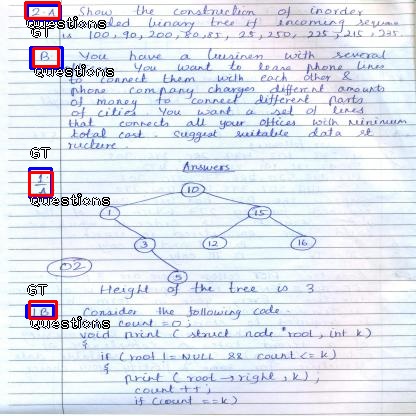 2.A Show the construction of inorder
GT
Questions
binary tree if incoming
is 100, 90, 200, 80, 85, 25, 250, 225, 215, 235.
B. You have a business with several
You want to lease phone lines
to connect them with each other &
phone company charges different amounts
of money to connect different parts
of cities You want a set of lines
that connects all your offices with minimum
total cost suggest suitable data st
ructure
GT
Questions
Answers
1. A
GT
Questions
10
1 15
3 12 16
02
5
Height of the tree is 3
GT
1B. Consider the following code.
Questions
count = 0;
void print ( struct node *root, int k)
{
if ( root != NULL && count <= k)
{
print ( root → right , k) ;
count ++ ;
if (count == k)